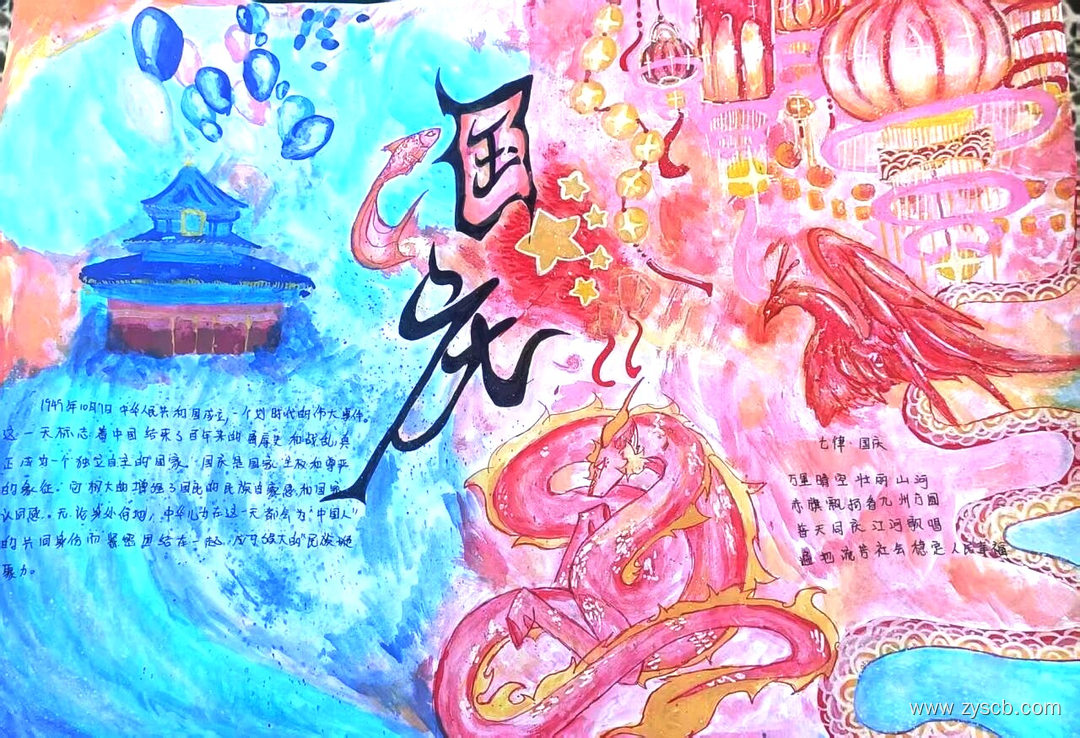 国庆
1949年10月1日 中华人民共和国成立,一个划时代的伟大事件。
这一天标志着中国结束了百年来的 历史和战乱,真
正成为一个独立自主的国家。国庆是国家主权和尊严
的象征。它极大的增强了国民的民族自豪感和国家
认同感。无论身处何地,中华儿女在这一天都会为"中国人"
的共同身份而紧密团结在一起,成为强大的"民族凝
聚力。
七律·国庆
万里晴空壮丽山河
赤旗飘扬看九州方圆
普天同庆江河歌唱
遍地流芳社会稳定人民幸福
www.zyscb.com